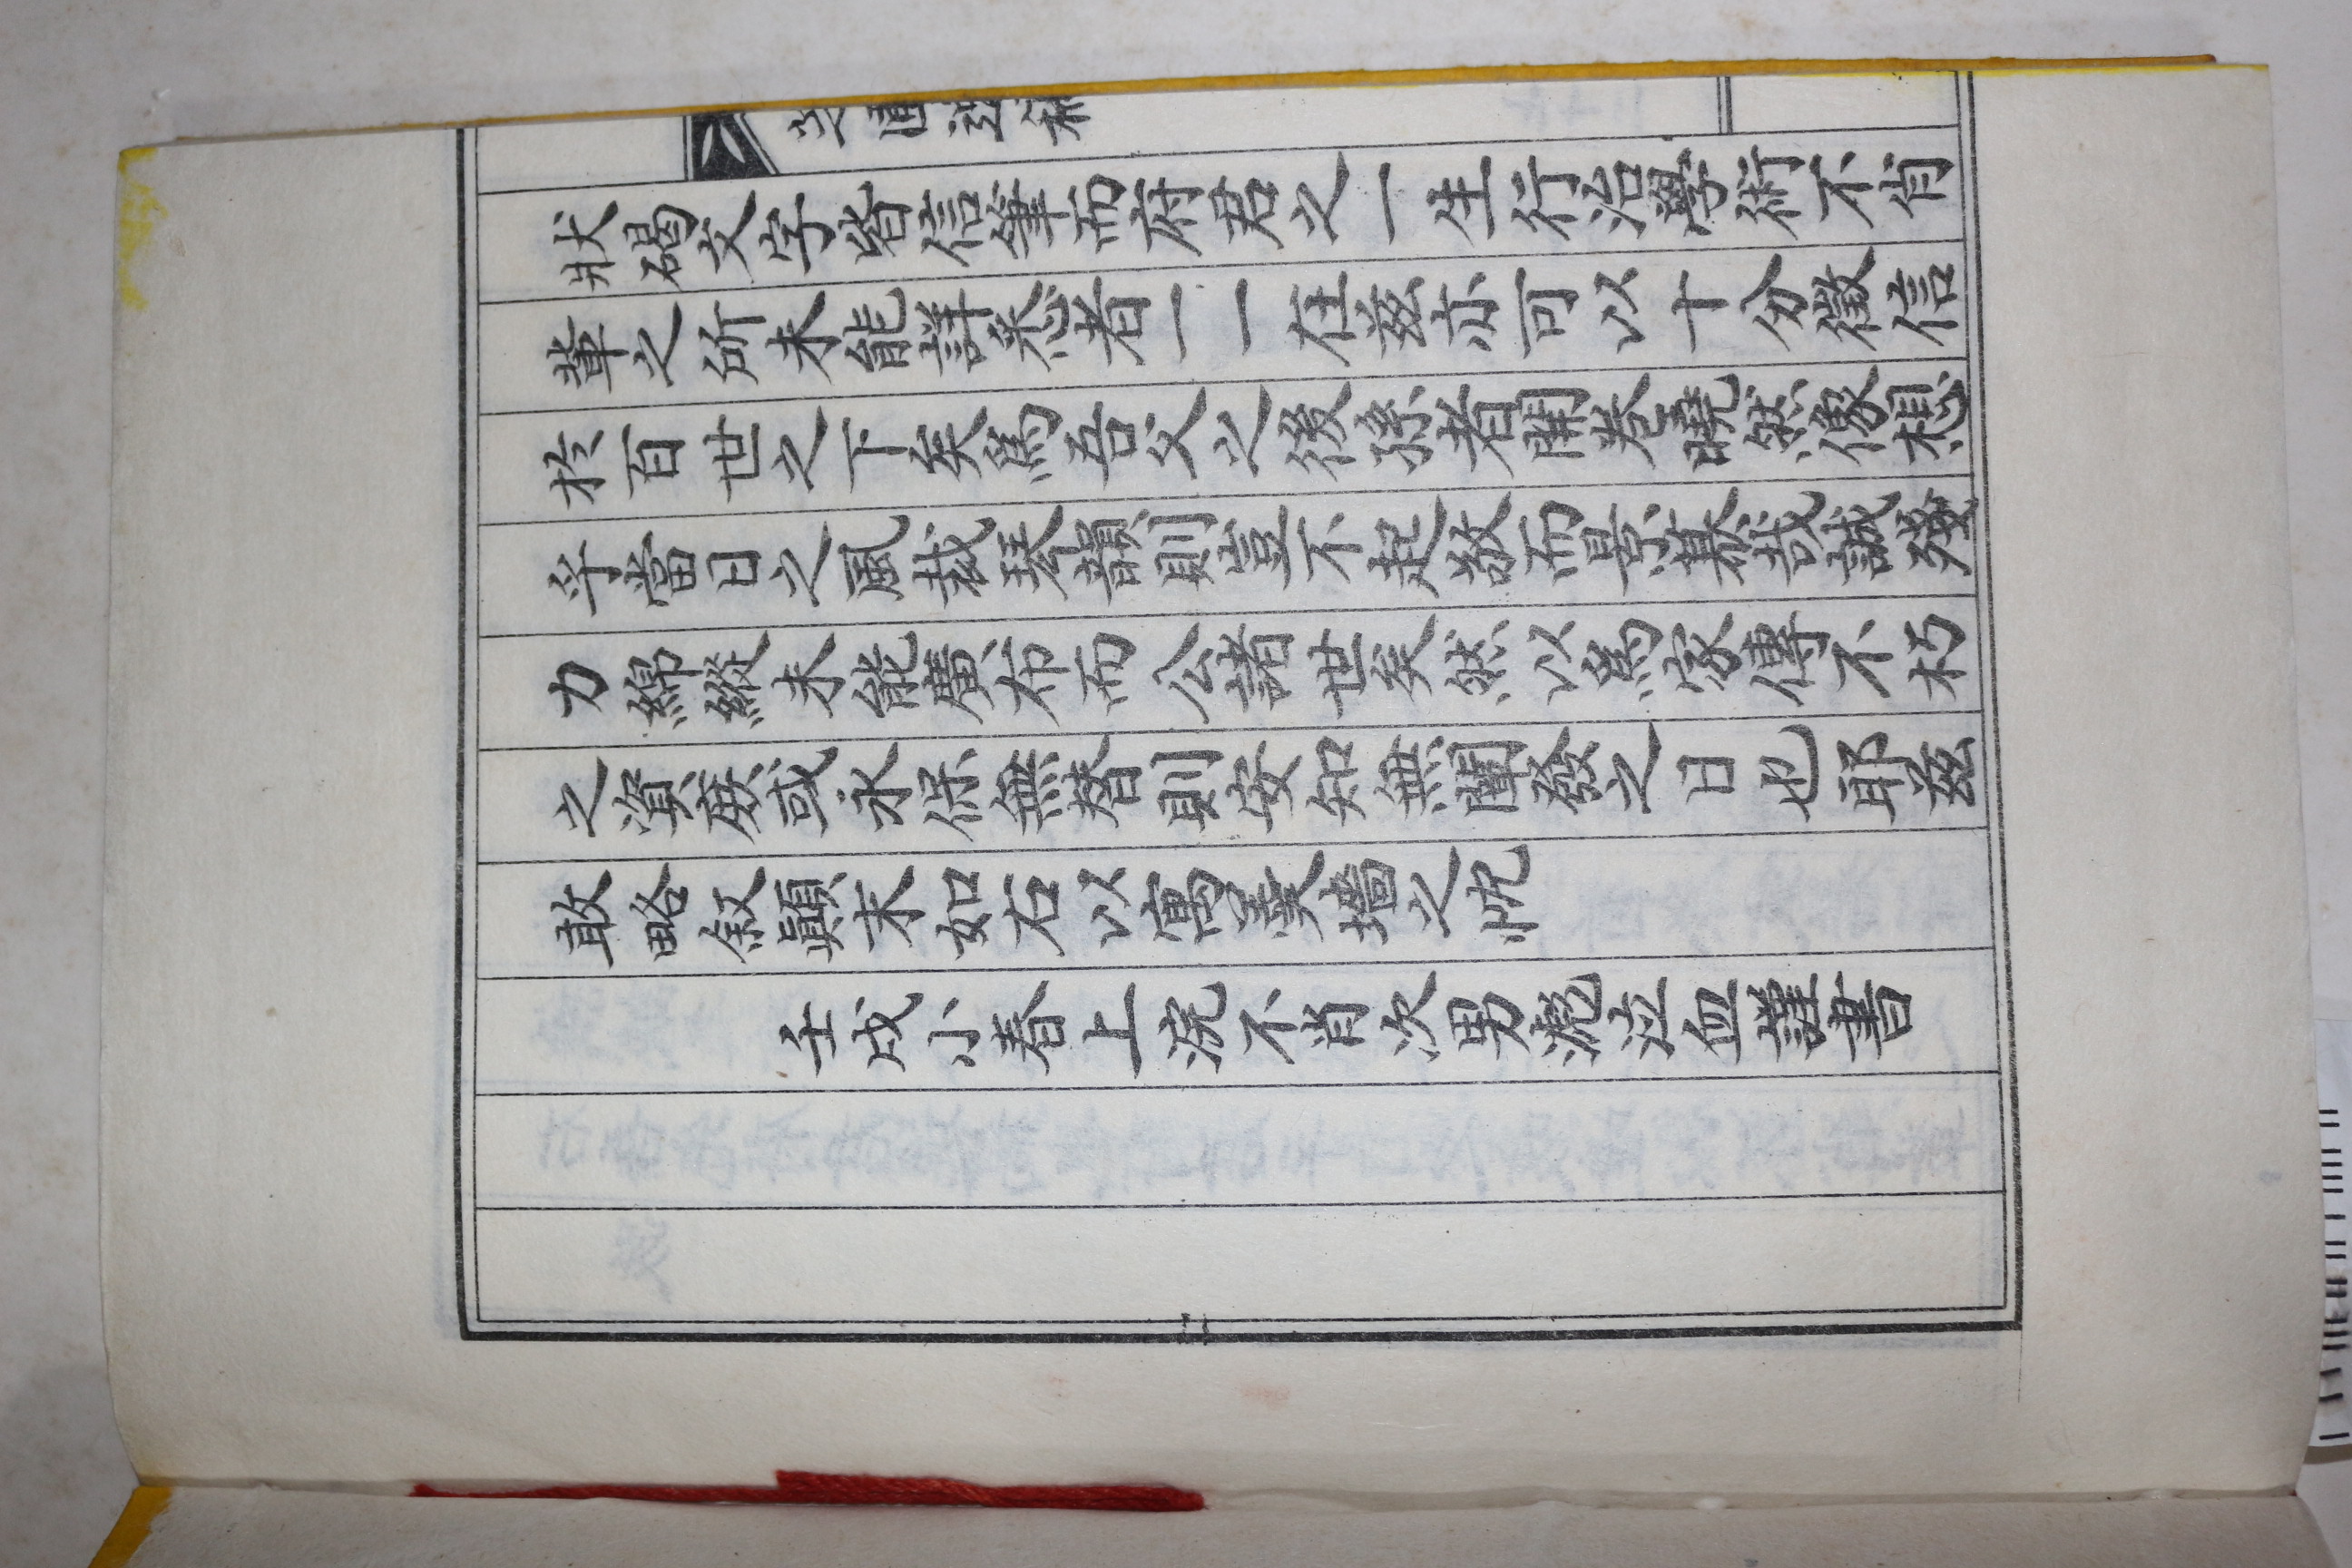 狀碣文字皆信筆而府君之一生行治學術不肖
輩之所未能詳悉者一一在兹亦可以十分徵信
於百世之下矣爲吾父之後孫者開卷曉然像想
乎當日之風裁琴韻則豈不起敬而景慕哉誠殘
力綿縱未能廣布而公諸世矣然以爲家傳不朽
之資庶或永保無替則安知無闡發之日也耶兹
敢略叙顚末如右以寓羹墻之忱
壬戌小春上浣不肖次男滮泣血謹書